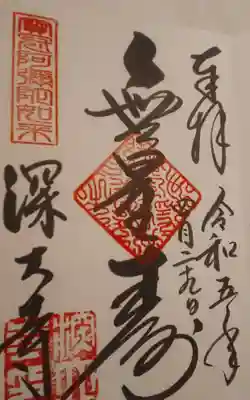 奉拝
令和五年
四月二十九日
無量壽
阿彌陀如来
深大寺